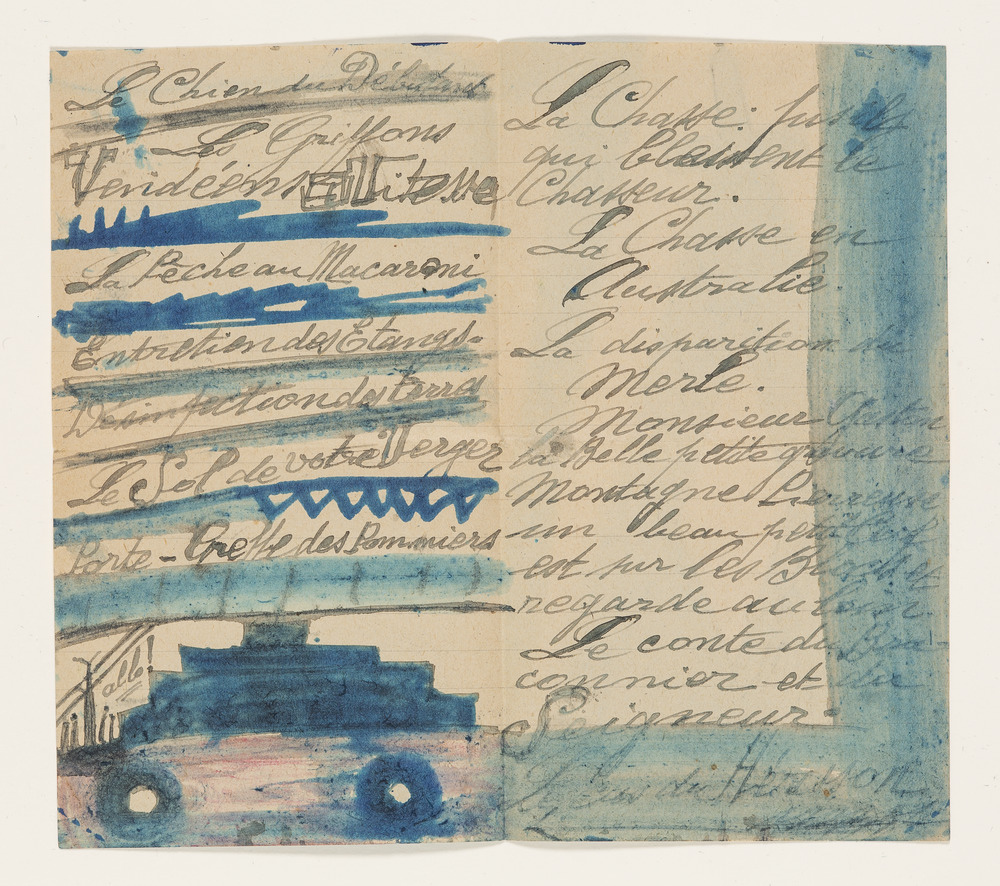 Le Chien du Débutant
Les Griffons
Vendéens Vitesse
La Pêche au Macaroni
Entretien des Etangs.
Désinfection des terres
Le Sol de votre Verger
Porte-Greffe des Pommiers
alle!
La Chasse. fusils
qui blessent le
Chasseur.
La Chasse en
Australie.
La disparition du
Merle.
Monsieur
la Belle petite gravure
Montagne
un beau petit
est sur les
regarde au loin.
Le conte du Bra-
connier et du
Seigneur.
du